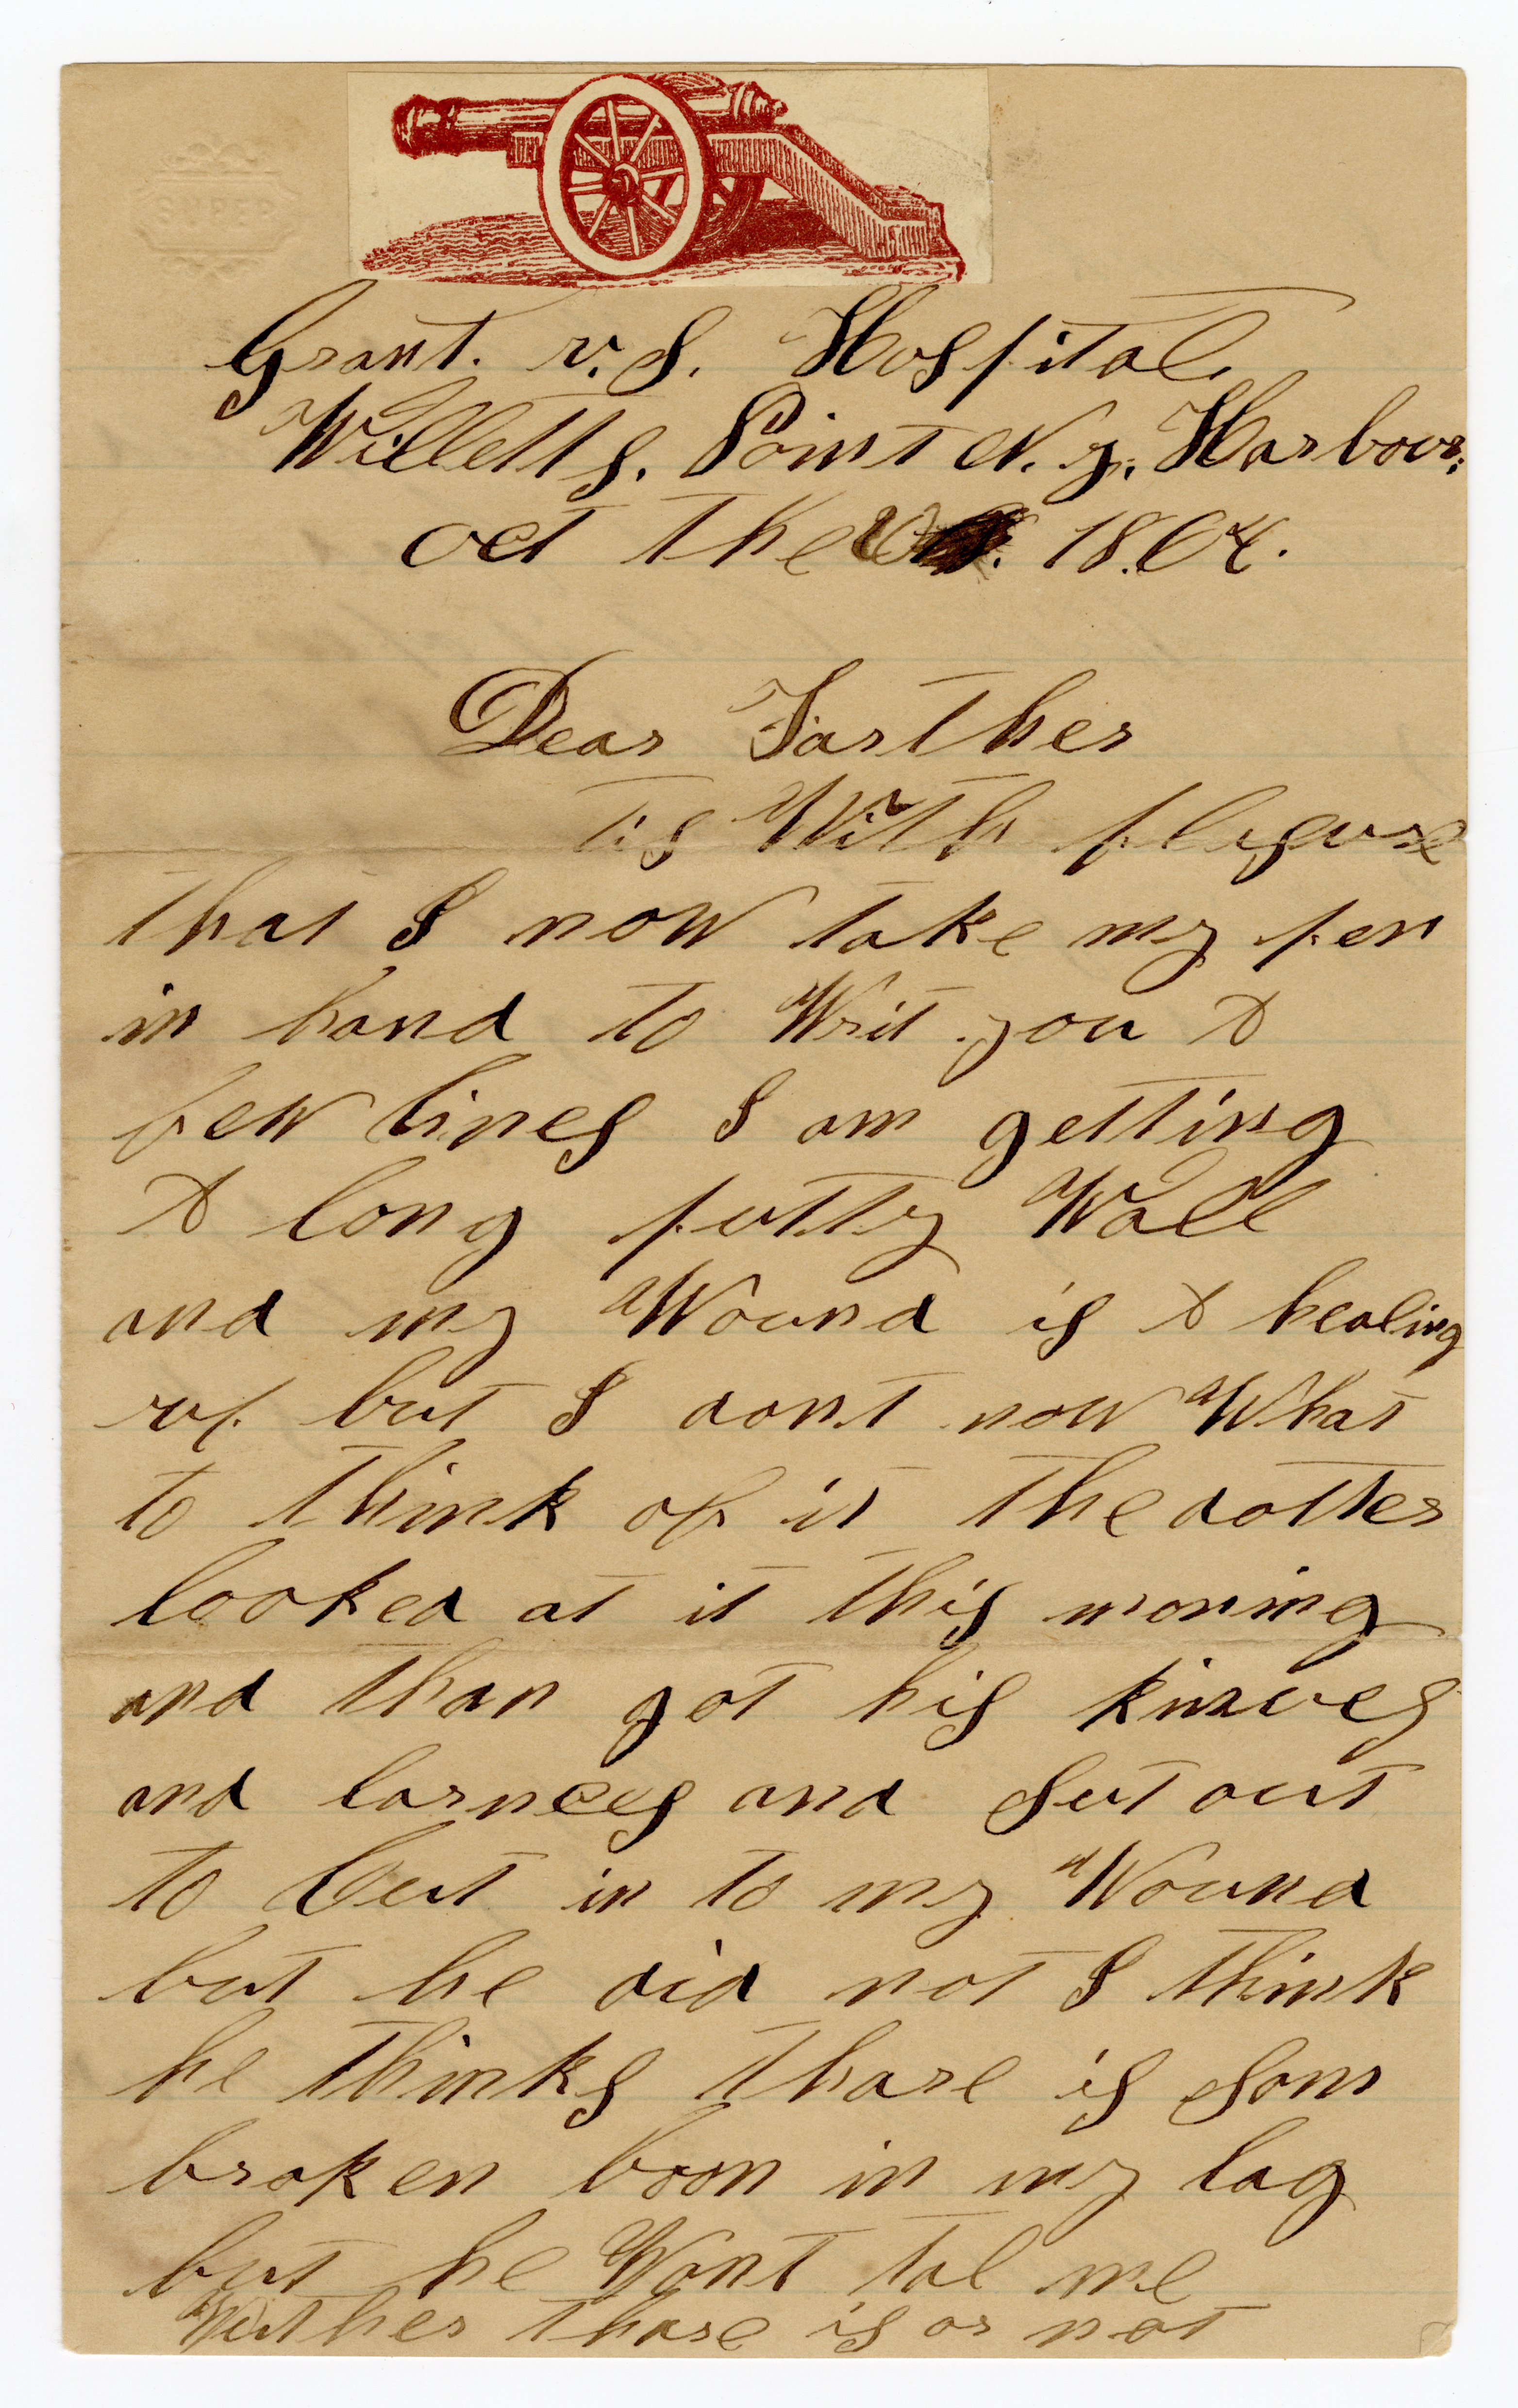 Grant. U.S. Hospital,
Willetts. Point N. y. Harbour:
oct the 1864.
Dear Farther
tis With plesure
that I now take my pen
in hand to Writ you A
few lines I am getting
A long putty Wall
and my Wound is A healing
up but I dont now What
to think of it the dotter
looked at it this morning
and than got his kinves
and larnces and Sut out
to Cut in to my Wound
but he did not I think
he thinks thare is Som
broken boon in my lag
but he Wont tal me
Wuther thare is or not